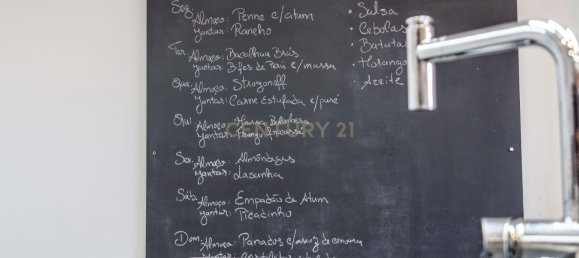 Seg. Almoço: Penne c/atum
Jantar: Rancho
Ter. Almoço: Bacalhau Brás
Jantar: Bifes de Perú c/massa
Qua. Almoço: Strogonoff
Jantar: Carne Estufada c/puré
Qui. Almoço: Massa Bolonhesa
Jantar: Frango Fricassé
Sex. Almoço: Almôndegas
Jantar: Lasanha
Sáb. Almoço: Empadão de Atum
Jantar: Picadinho
Dom. Almoço: Panados c/arroz de cenoura
Jantar:
• Salsa
• Cebolas
• Batatas
• Morangos
• Azeite
CENTURY 21